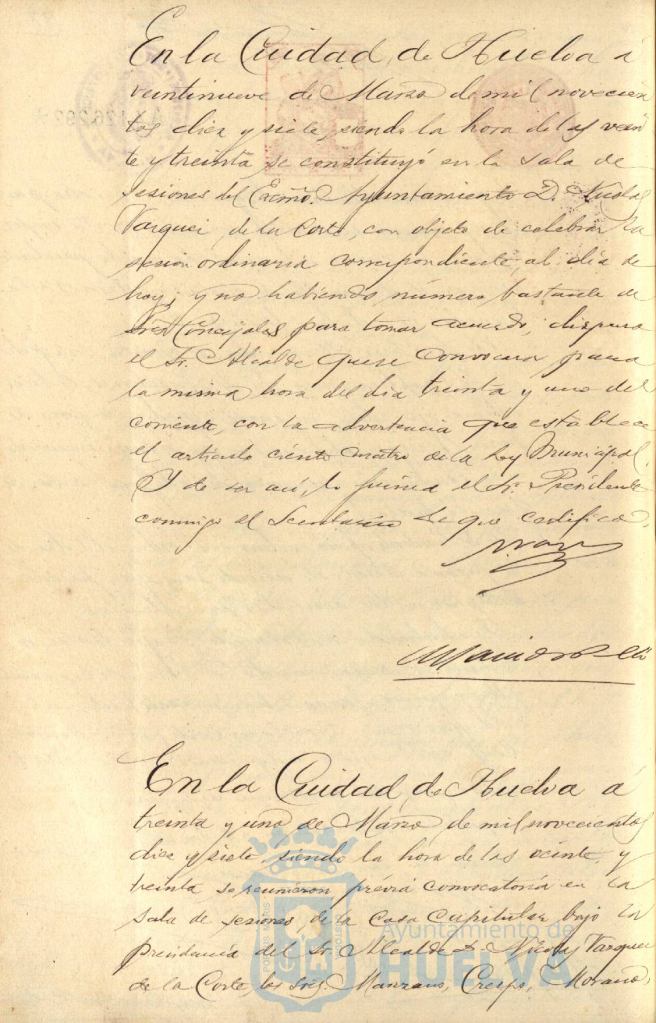 En la Cuidad, de Huelva á
veintinueve de Marzo de mil novecien
tos diez y siete, siendo la hora de las vein
te y treinta se constituyó en la Sala de
sesiones del Excmo. Ayuntamiento D. Nicolas
Vazquez, de la Corte, con objeto de celebrar la
sesion ordinaria correspondiente, al dia de
hoy; y no habiendo número bastante de
Sres Concejales para tomar acuerdo, dispuso
el Sr. Alcalde que se convocara para
la misma hora del dia treinta y uno del
corriente, con la advertencia que establece
el articulo ciento cuatro de la Ley Municipal.
Y de ser asi, lo firma el Sr. Presidente
conmigo el Secretario de que certifico.
En la Cuidad de Huelva á
treinta y uno de Marzo de mil novecientos
diez y siete, siendo la hora de las veinte, y
treinta se reunieron prévia convocatoria en la
sala de sesiones, de la Casa Capitular bajo la
presidencia del Sr. Alcalde D. Nicolas Vazquez
de la Corte, los Sres. Manzano, Crespo, Morano,
Ayuntamiento de
HUELVA